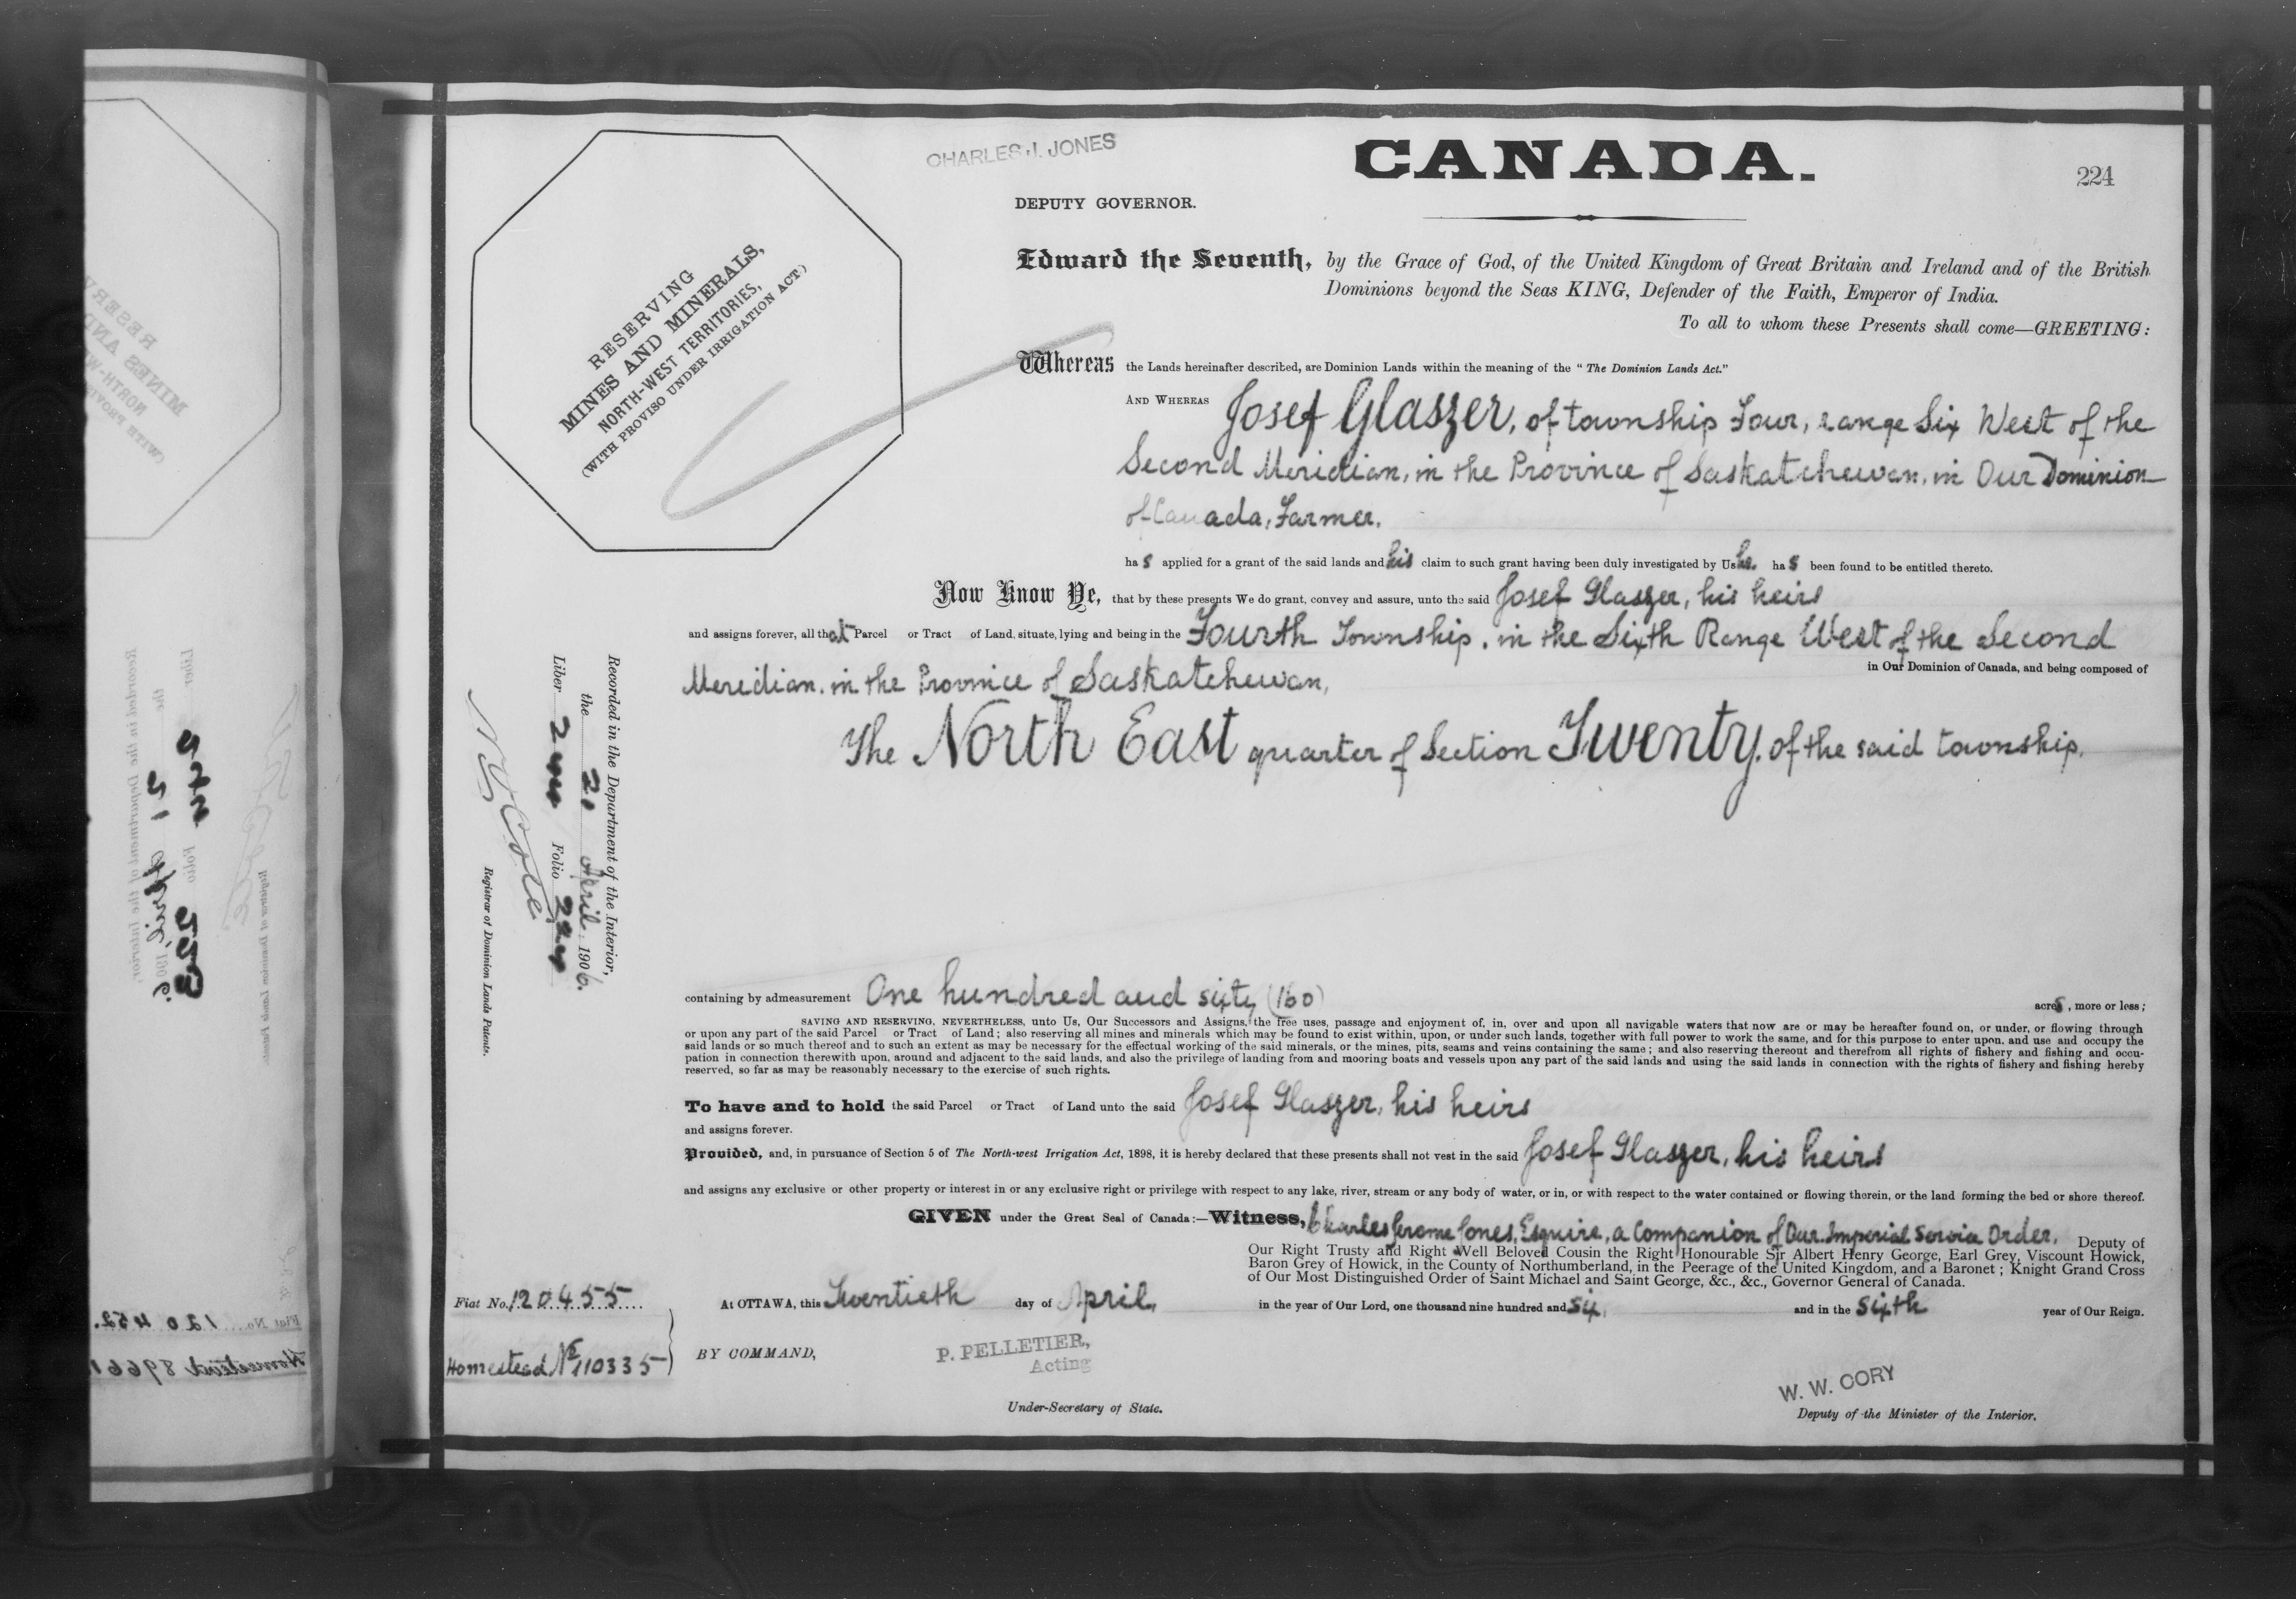 CHARLES J. JONES
CANADA.
224
DEPUTY GOVERNOR.
RESERVING
MINES AND MINERALS,
NORTH-WEST TERRITORIES,
(WITH PROVISO UNDER IRRIGATION ACT.)
Edward the Seventh, by the Grace of God, of the United Kingdom of Great Britain and Ireland and of the British
Dominions beyond the Seas KING, Defender of the Faith, Emperor of India.
To all to whom these Presents shall come—GREETING:
Whereas the Lands hereinafter described, are Dominion Lands within the meaning of the "The Dominion Lands Act."
AND WHEREAS Josef Glaszer, of township Four, range Six West of the
Second Meridian, in the Province of Saskatchewan, in Our Dominion
of Canada, Farmer.
ha s applied for a grant of the said lands and his claim to such grant having been duly investigated by Us he ha s been found to be entitled thereto.
Now Know Ye, that by these presents We do grant, convey and assure, unto the said Josef Glaszer, his heirs
and assigns forever, all that Parcel or Tract of Land, situate, lying and being in the Fourth Township, in the Sixth Range West of the Second
Meridian, in the Province of Saskatchewan, in Our Dominion of Canada, and being composed of
The North East quarter of Section Twenty, of the said township.
containing by admeasurement One hundred and sixty (160) acres, more or less;
SAVING AND RESERVING, NEVERTHELESS, unto Us, Our Successors and Assigns, the free uses, passage and enjoyment of, in, over and upon all navigable waters that now are or may be hereafter found on, or under, or flowing through
or upon any part of the said Parcel or Tract of Land; also reserving all mines and minerals which may be found to exist within, upon, or under such lands, together with full power to work the same, and for this purpose to enter upon, and use and occupy the
said lands or so much thereof and to such an extent as may be necessary for the effectual working of the said minerals, or the mines, pits, seams and veins containing the same; and also reserving thereout and therefrom all rights of fishery and fishing and occu-
pation in connection therewith upon, around and adjacent to the said lands, and also the privilege of landing from and mooring boats and vessels upon any part of the said lands and using the said lands in connection with the rights of fishery and fishing hereby
reserved, so far as may be reasonably necessary to the exercise of such rights.
To have and to hold the said Parcel or Tract of Land unto the said Josef Glaszer, his heirs
and assigns forever.
Provided, and, in pursuance of Section 5 of The North-west Irrigation Act, 1898, it is hereby declared that these presents shall not vest in the said Josef Glaszer, his heirs
and assigns any exclusive or other property or interest in or any exclusive right or privilege with respect to any lake, river, stream or any body of water, or in, or with respect to the water contained or flowing therein, or the land forming the bed or shore thereof.
GIVEN under the Great Seal of Canada:—Witness, Charles Jerome Jones, Esquire, a Companion of Our Imperial Service Order, Deputy of
Our Right Trusty and Right Well Beloved Cousin the Right Honourable Sir Albert Henry George, Earl Grey, Viscount Howick,
Baron Grey of Howick, in the County of Northumberland, in the Peerage of the United Kingdom, and a Baronet; Knight Grand Cross
of Our Most Distinguished Order of Saint Michael and Saint George, &c., &c., Governor General of Canada.
At OTTAWA, this Twentieth day of April, in the year of Our Lord, one thousand nine hundred and six, and in the sixth year of Our Reign.
BY COMMAND,
P. PELLETIER,
Acting
Under-Secretary of State.
W. W. CORY
Deputy of the Minister of the Interior.
Fiat No. 120455
Homestead No 110335
Recorded in the Department of the Interior,
the 20 April, 1906.
Liber 244 Folio 224
Registrar of Dominion Lands Patents.